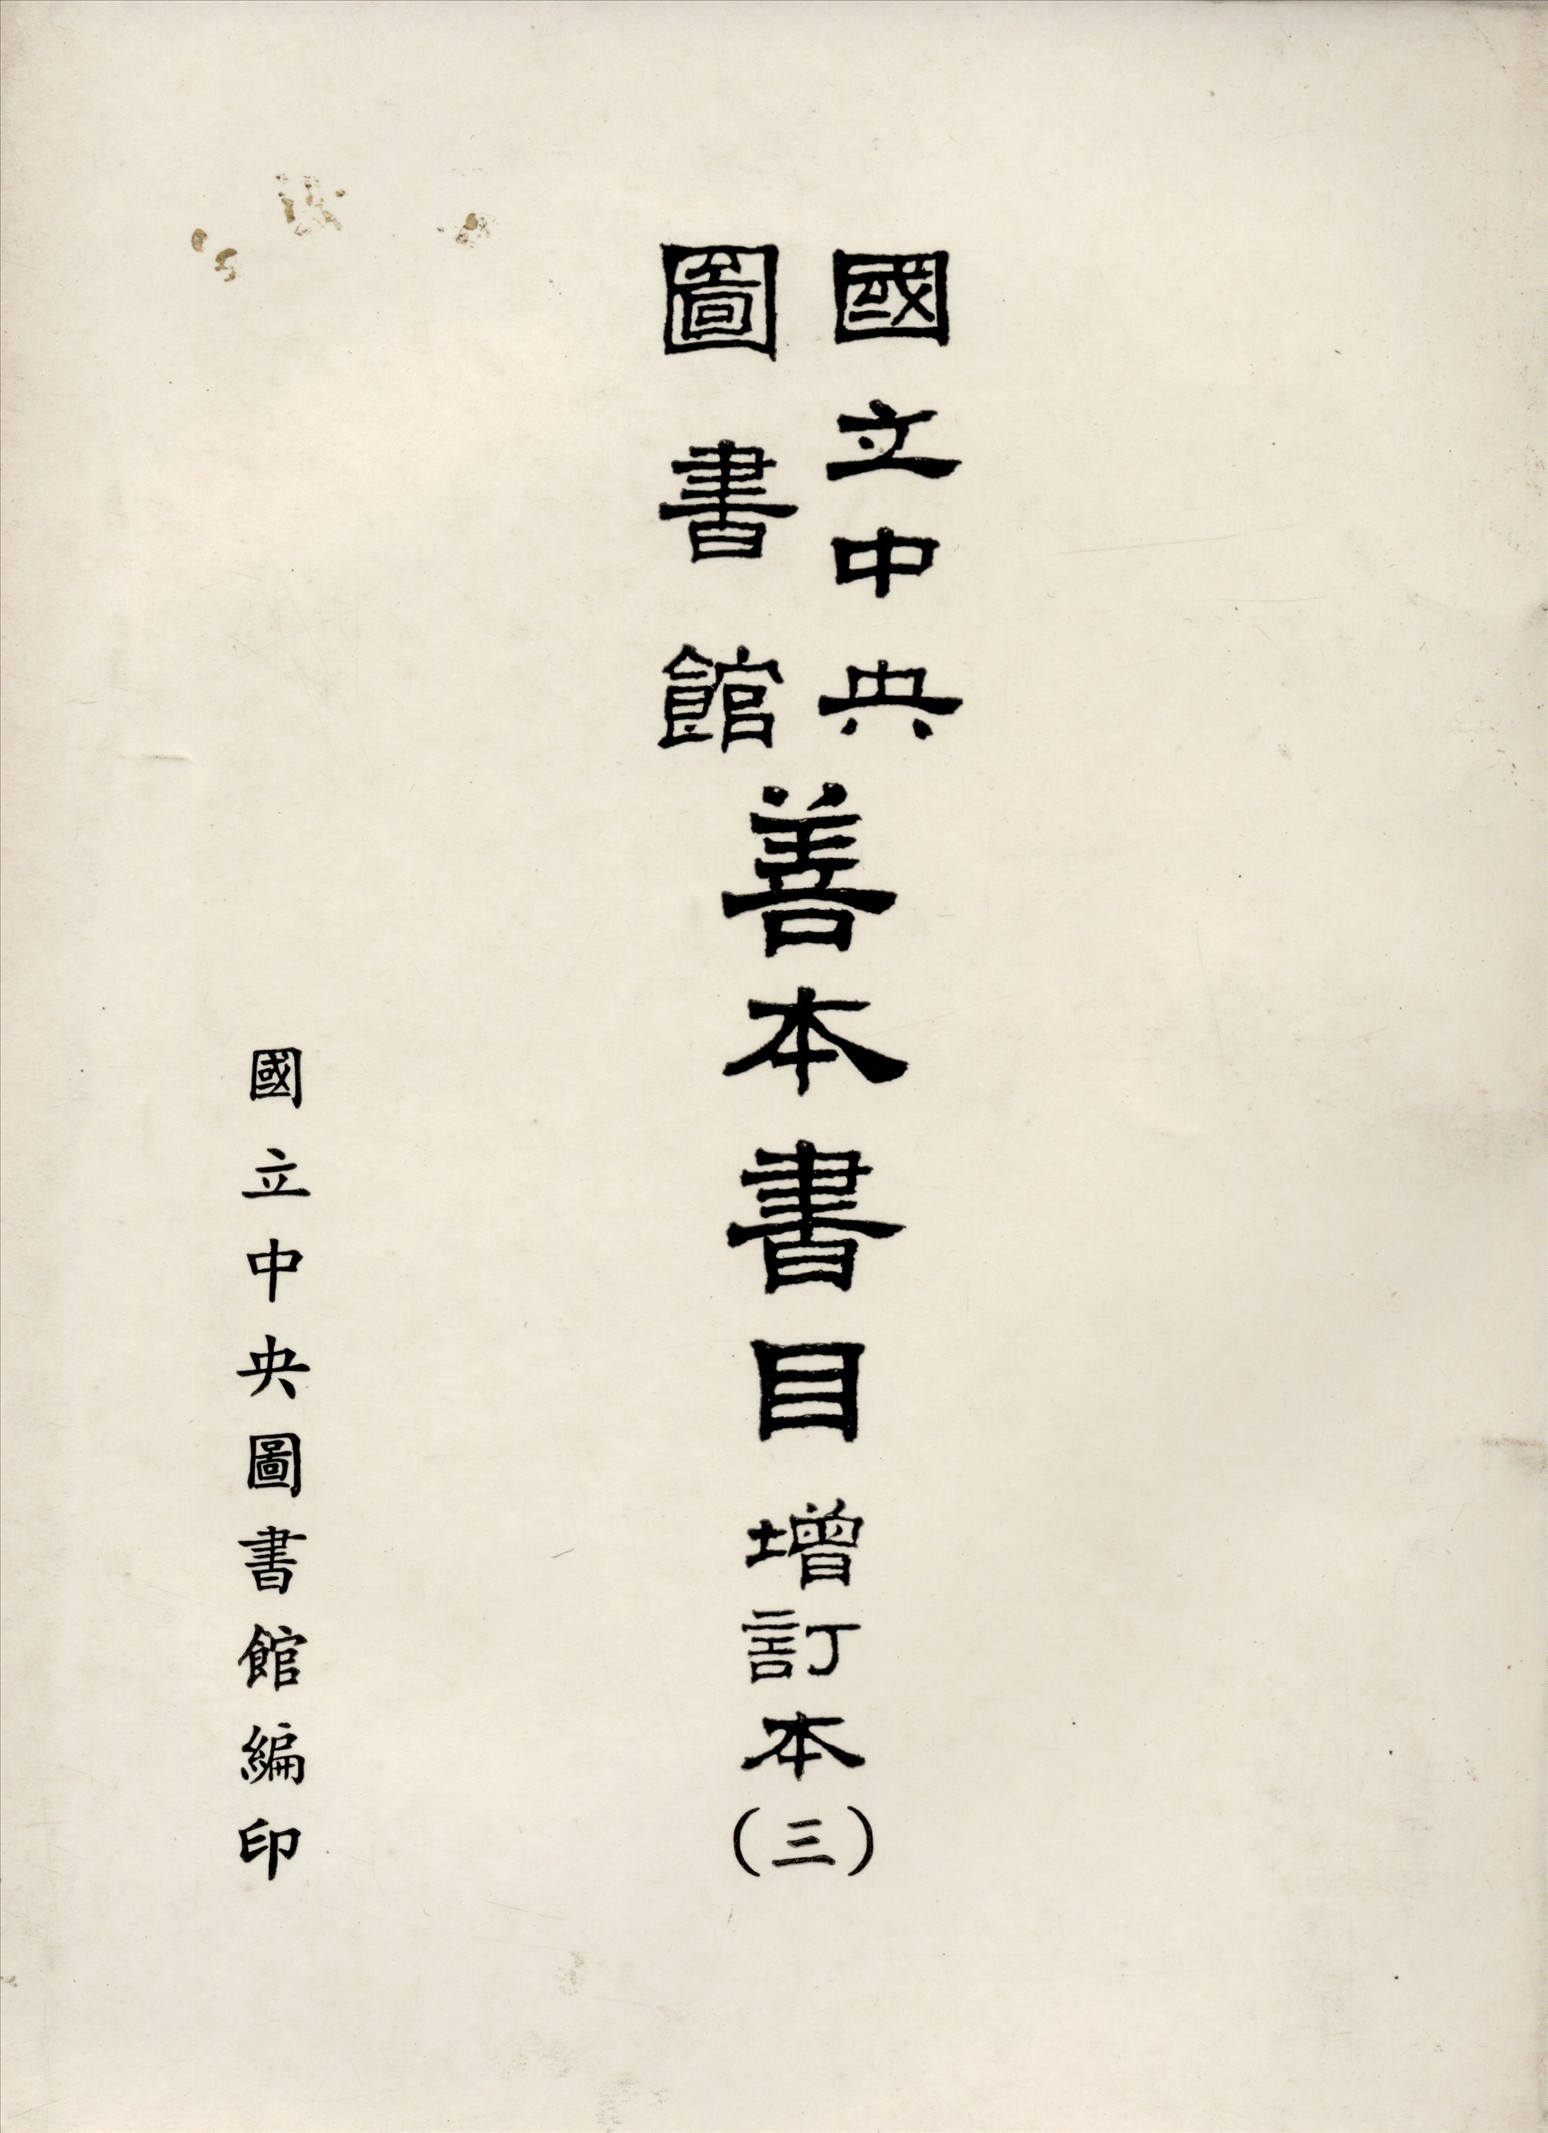 國立中央
圖書館
善本書目 增訂本(三)
國立中央圖書館編印